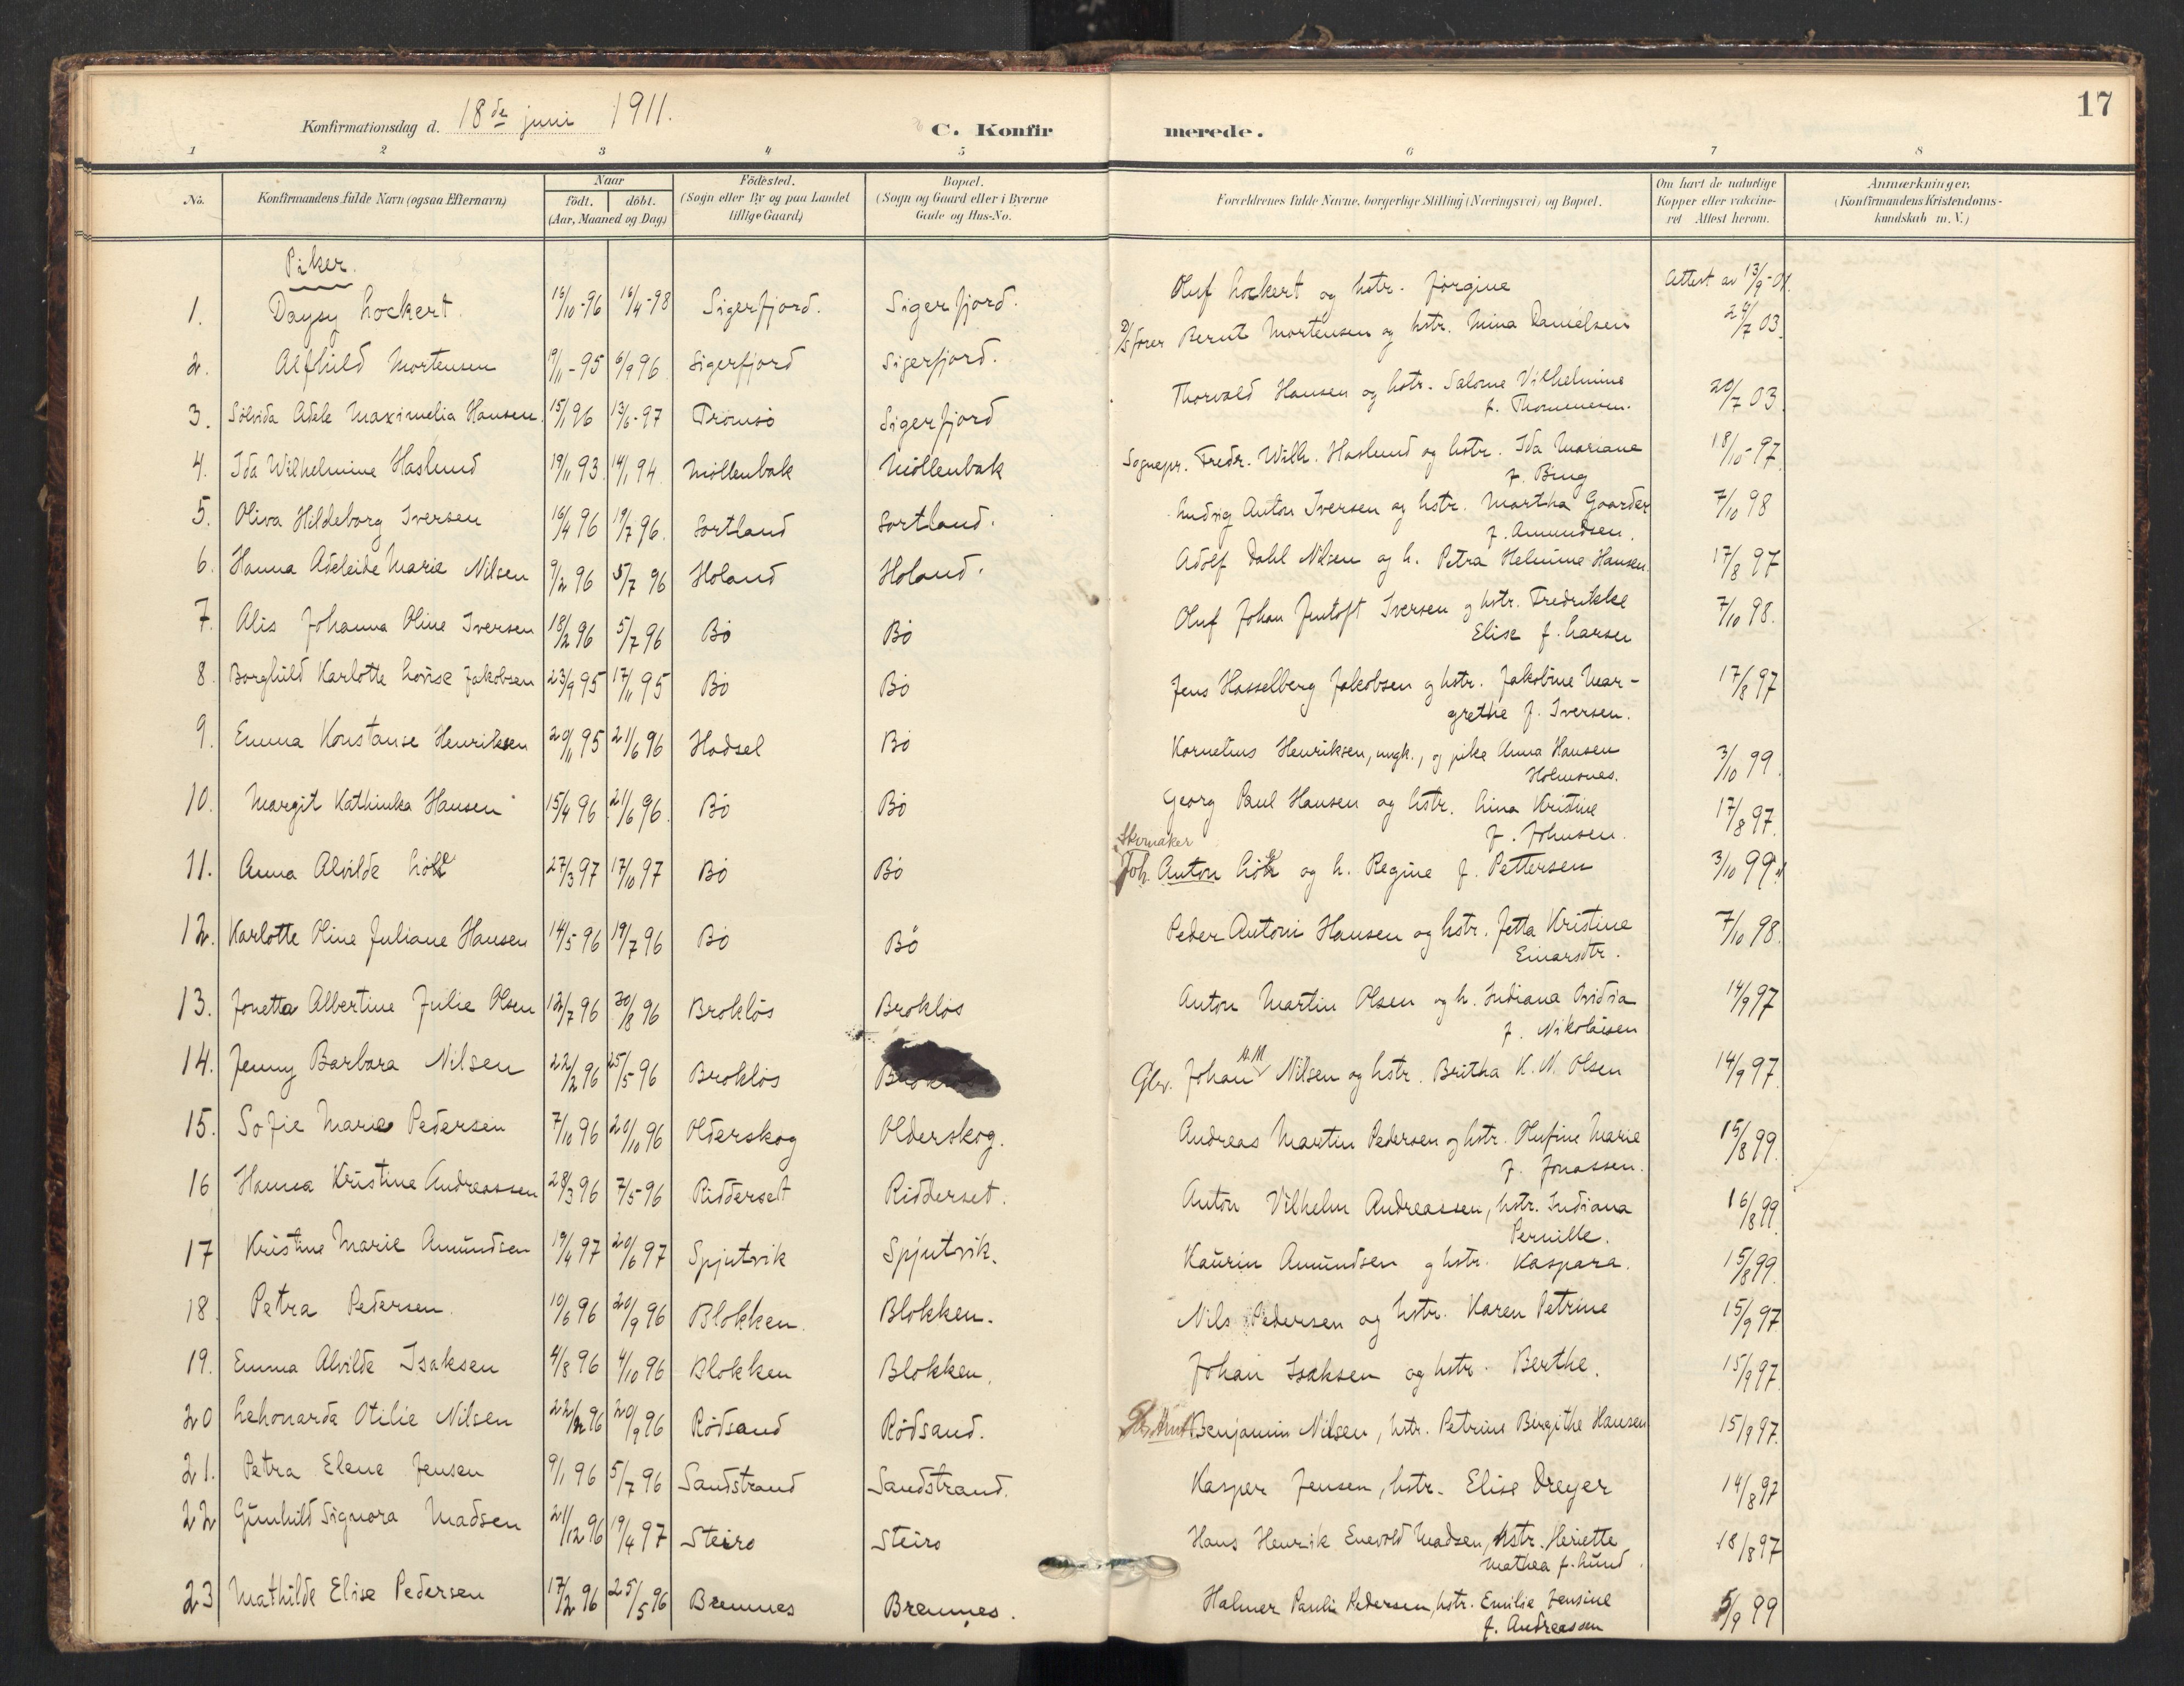 17
Konfirmationsdag d. 18de juni 1911. C. Konfirmerede.
1 2 3 4 5 6 7 8
No. Konfirmandens fulde Navn (ogsaa Efternavn) Naar födt. döbt. (Aar, Maaned og Dag) Födested. (Sogn eller By og paa Landet tillige Gaard) Bopæl. (Sogn og Gaard eller i Byerne Gade og Hus-No. Forældrenes fulde Navne, borgerlige Stilling (Næringsvei) og Bopæl. Om havt de naturlige Kopper eller vakcineret Attest herom. Anmærkninger. (Konfirmandens Kristendomskundskab m. V.)
Piker.
1. Daysy Lockert. 16/10-96 16/4-98 Sigerfjord. Sigerfjord. Oluf Lockert og hstr. Jørgine Attest av 13/9-01.
2. Alfhild Mortensen 19/11-95 6/9 96 Sigerfjord Sigerfjord. D/S fører Bernt Mortensen og hstr. Mina Danielsen 24/7 03.
3. Solvida Adele Maximelia Hansen 15/1 96 13/6-97 Tromsö Sigerfjord Thorvald Hansen og hstr. Salome Vilhelmine
f. Thommesen. 20/7 03.
4. Ida Wilhelmine Haslund 19/11 93 14/1 94 Möllenbak Möllenbak Sognepr. Fredr. Wilh. Haslund og hstr. Ida Mariane
f. Bing 18/10-97
5. Oliva Hildeborg Iversen 16/4 96 19/7 96. Sortland Sortland. Ludvig Anton Iversen og hstr. Martha Gaarder
f. Amundsen. 7/10 98
6. Hanna Adeleide Marie Nilsen 9/2 96 5/7 96 Holand Holand. Adolf Dahl Nilsen og h. Petra Helmine Hansen. 17/8 97
7. Alis Johanna Oline Iversen 18/2 96 5/7 96 Bö Bö Oluf Johan Jentoft Iversen g hstr. Fredrikke
Elise f. Larsen 7/10 98.
8. Borghild Karlotte Lovise Jakobsen 23/9 95 17/11 95 Bö Bö Jens Hasselberg Jakobsen g hstr. Jakobine Mar-
grethe f. Iversen. 17/8 97
9. Emma Konstanse Henriksen 20/11 95 21/6 96 Hadsel Bö Kornelius Henriksen, ungk., g pike Anna Hansen
Holmsnes. 3/10 99.
10. Margit Kathinka Hansen 15/4 96 21/6 96. Bö Bö Georg Paul Hansen og hstr. Lina Kristine
f. Johnsen. 17/8 97.
Skomaker
11. Anna Alvilde 27/3 97 17/10 97 Bö Bö Joh. Anton og h. Regine f. Pettersen 3/10 99.
12. Karlotte Oline Juliane Hansen 14/5-96 19/7 96 Bö Bö Peder Antoni Hansen og hstr. Jetta Kristine
Einarsdtr. 7/10 98.
13. Jonetta Albertine Julie Olsen 12/7 96 30/8 96 Broklös Broklös Anton Martin Olsen og h. Indiana Ovidia
f. Nikolaisen 14/9 97
14. Jenny Barbara Nilsen 22/2 96 25/5 96 Broklös Glbr. Johan N.M. Nilsen og hstr. Britha K. N. Olsen 14/9 97.
15. Sofie Marie Pedersen 7/10 96 20/10 96 Olderskog Olderskog. Andreas Martin Pedersen g hstr. Olufine Marie
f. Jonassen. 15/8 99.
16 Hanna Kristine Andreassen 28/3 96 7/5-96 Ridderset Ridderset. Anton Vilhelm Andreassen, hstr. Indiana
Pernille. 16/8 99.
17 Kristine Marie Amundsen 19/4 97 20/6 97 Spjutvik Spjutvik. Kaurin Amundsen g hstr. Kaspara. 15/8 99.
18. Petra Pedersen. 10/6 96 20/9 96 Blokken. Blokken. Nils Pedersen og hstr. Karen Petrine 15/9 97
19. Emma Alvilde Isaksen 4/8 96 4/10 96 Blokken Blokken. Johan Isaksen og hstr. Berthe. 15/9 97.
20 Lehonarda Otilie Nilsen 22/2 96 20/9 96 Rödsand Rödsand. Benjamin Nilsen, hstr. Petrine Birgithe Hansen 15/9 97.
21. Petra Elene Jensen 9/1 96 5/7 96 Sandstrand Sandstrand. Kasper Jensen, hstr. Elise Dreyer 14/8 97
22 Gunhild Signora Madsen 21/12 96 19/4 97 Steiro Steiro Hans Henrik Enevold Madsen, hstr. Heriette
Mathea f. Lund. 18/8 97
23 Mathilde Elise Pedersen 17/2 96 25/5 96 Bremnes Bremnes. Halmer Pauli Pedersen, hstr. Emilie Jensine
f. Andreassen 5/9 99